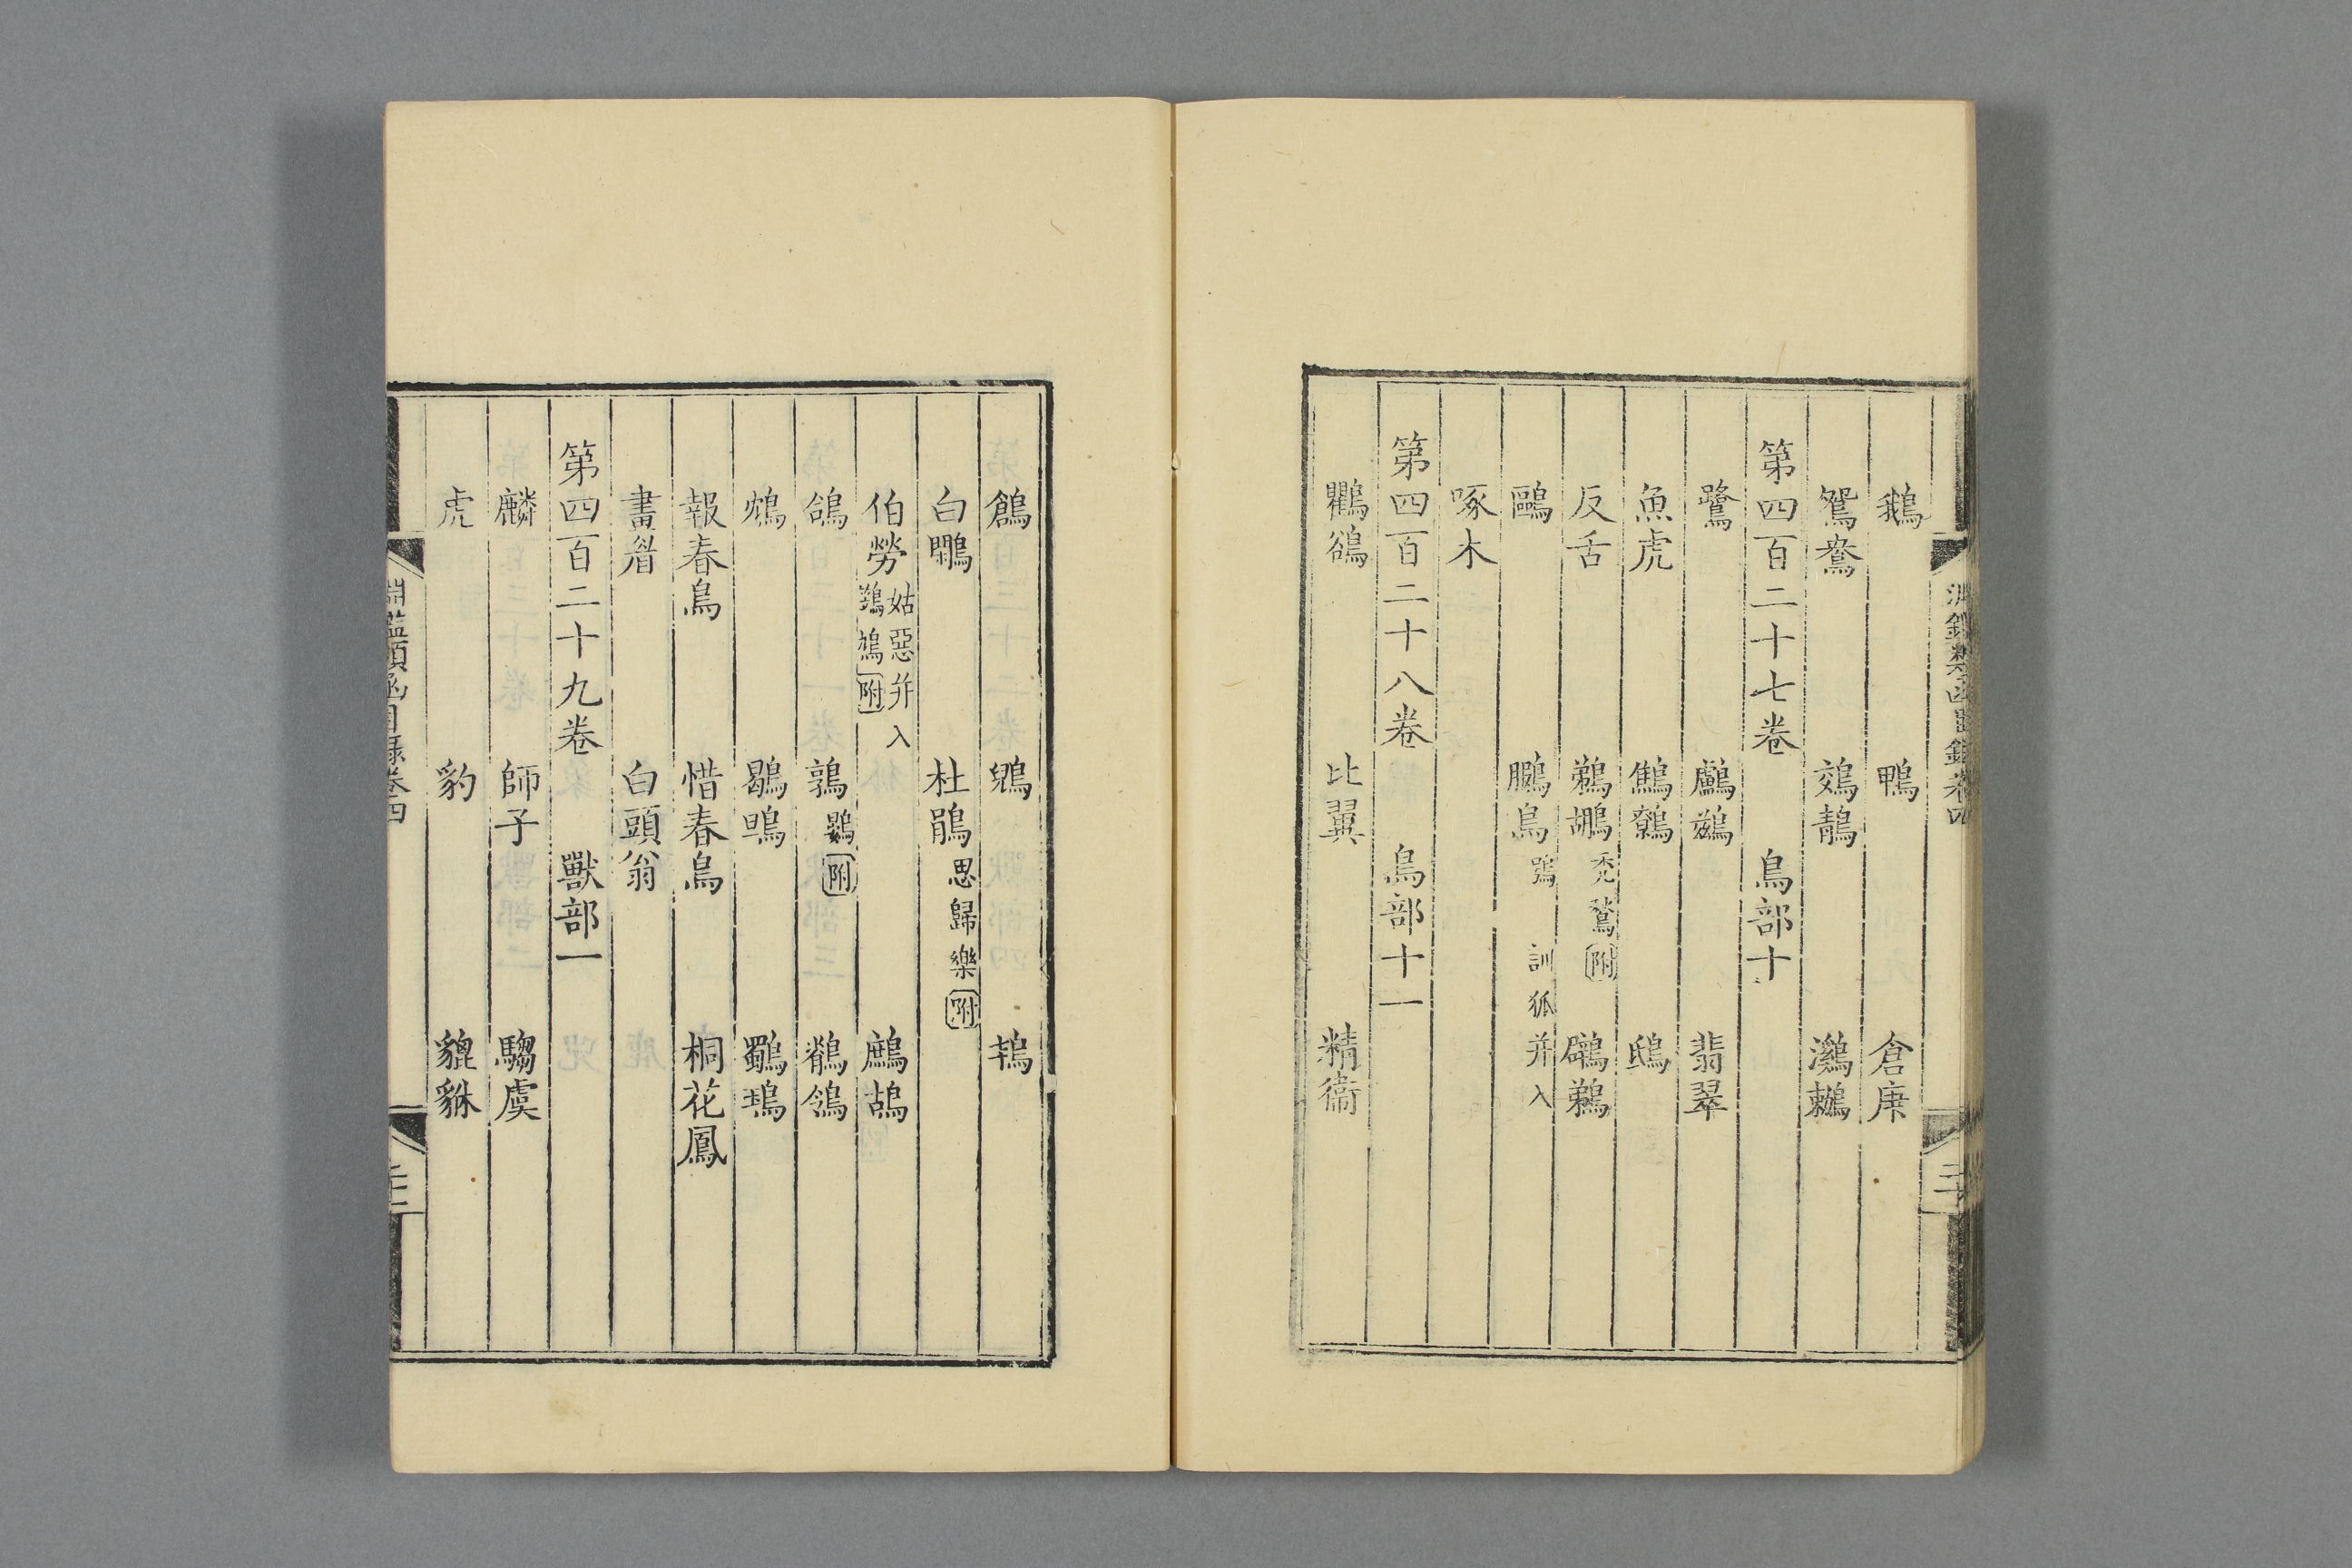 淵鑑類函目錄卷四
鵝 鴨 倉庚
鴛鴦 鵁鶄 鸂鶒
第四百二十七卷 鳥部十
鷺 鸕鶿 翡翠
魚虎 鷦鷯 鴟
反舌 鵜鶘 禿鶖附 鸊鵜
鷗 鵩鳥 鴞 訓狐并入
啄木
第四百二十八卷 鳥部十一
鸜鵒 比翼 精衞
鶬 鶂 鴇
白鷴 杜鵑 思歸樂附
伯勞 姑惡并入 附 鷓鴣
鴿 鶉 鷃附 鶺鴒
鴆 鶡鴠 鸀鳿
報春鳥 惜春鳥 桐花鳳
畫眉 白頭翁
第四百二十九卷 獸部一
麟 師子 騶虞
虎 豹 貔貅
淵鑑類函目錄卷四